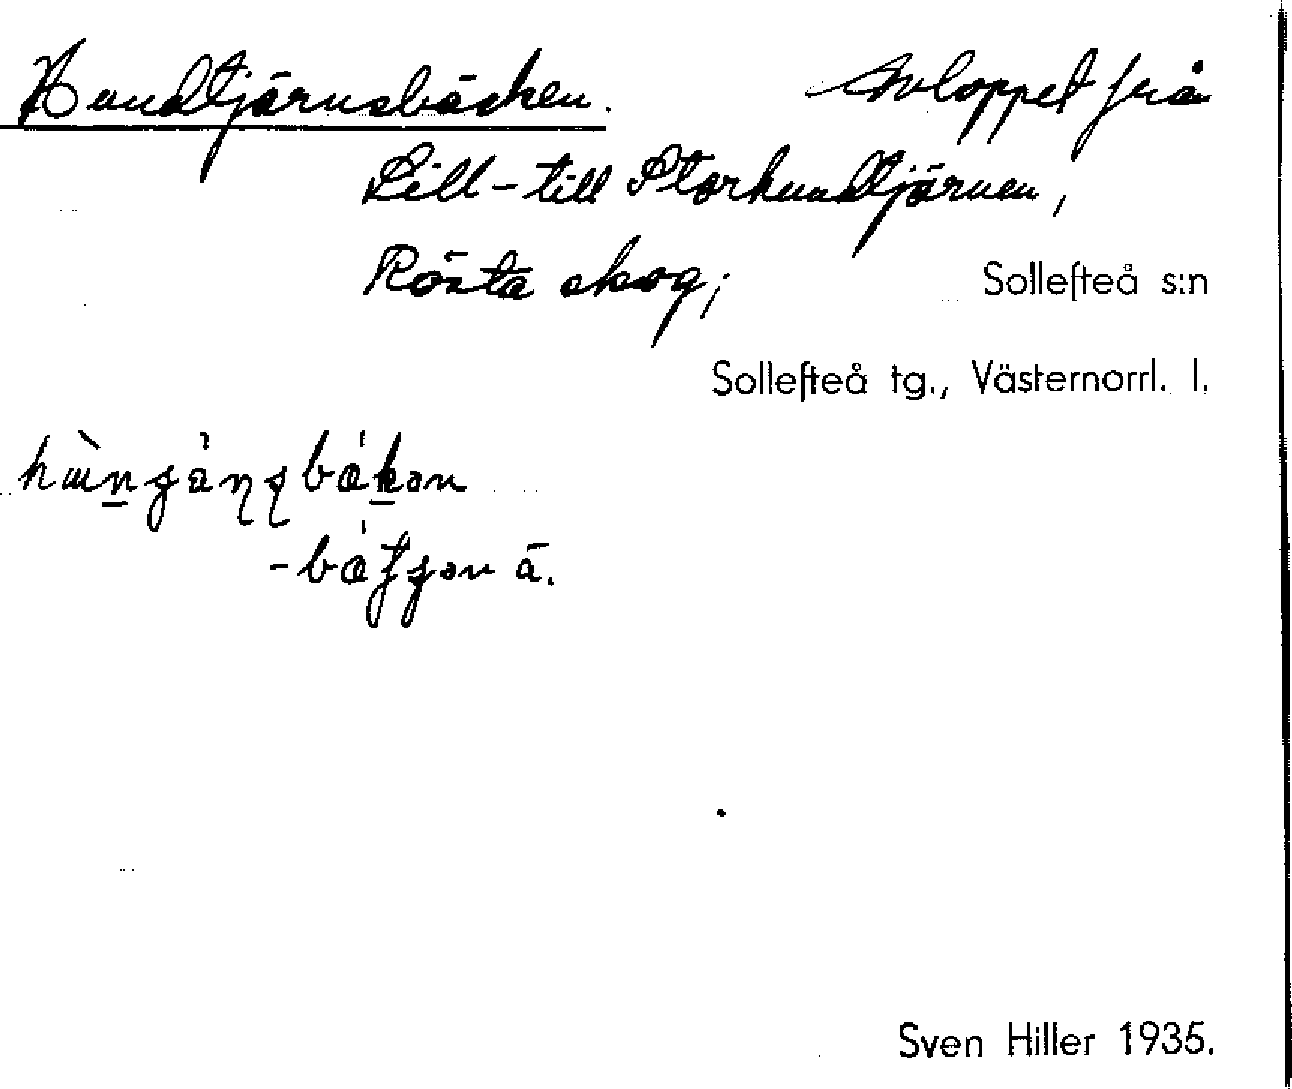 Hundtjärnsbäcken. Avloppet från
Lill- till Storhundtjärnen,
Rösta skog; Sollefteå s:n
Sollefteå tg., Västernorrl. l.
Sven Hiller 1935.